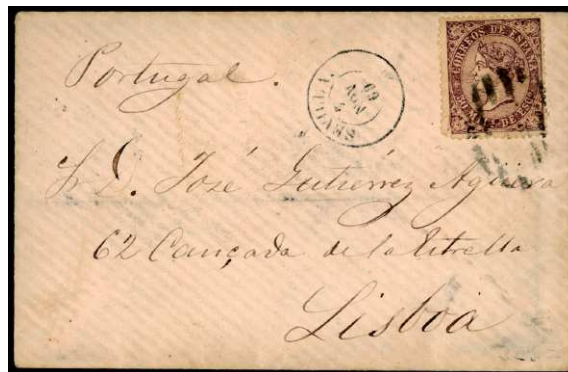 Portugal.
SEVILLA.
NOV
69
CORREOS DE ESPAÑA
Sr. D. José Gutiérrez Agüera
62 Cançada de la Estrella
Lisboa